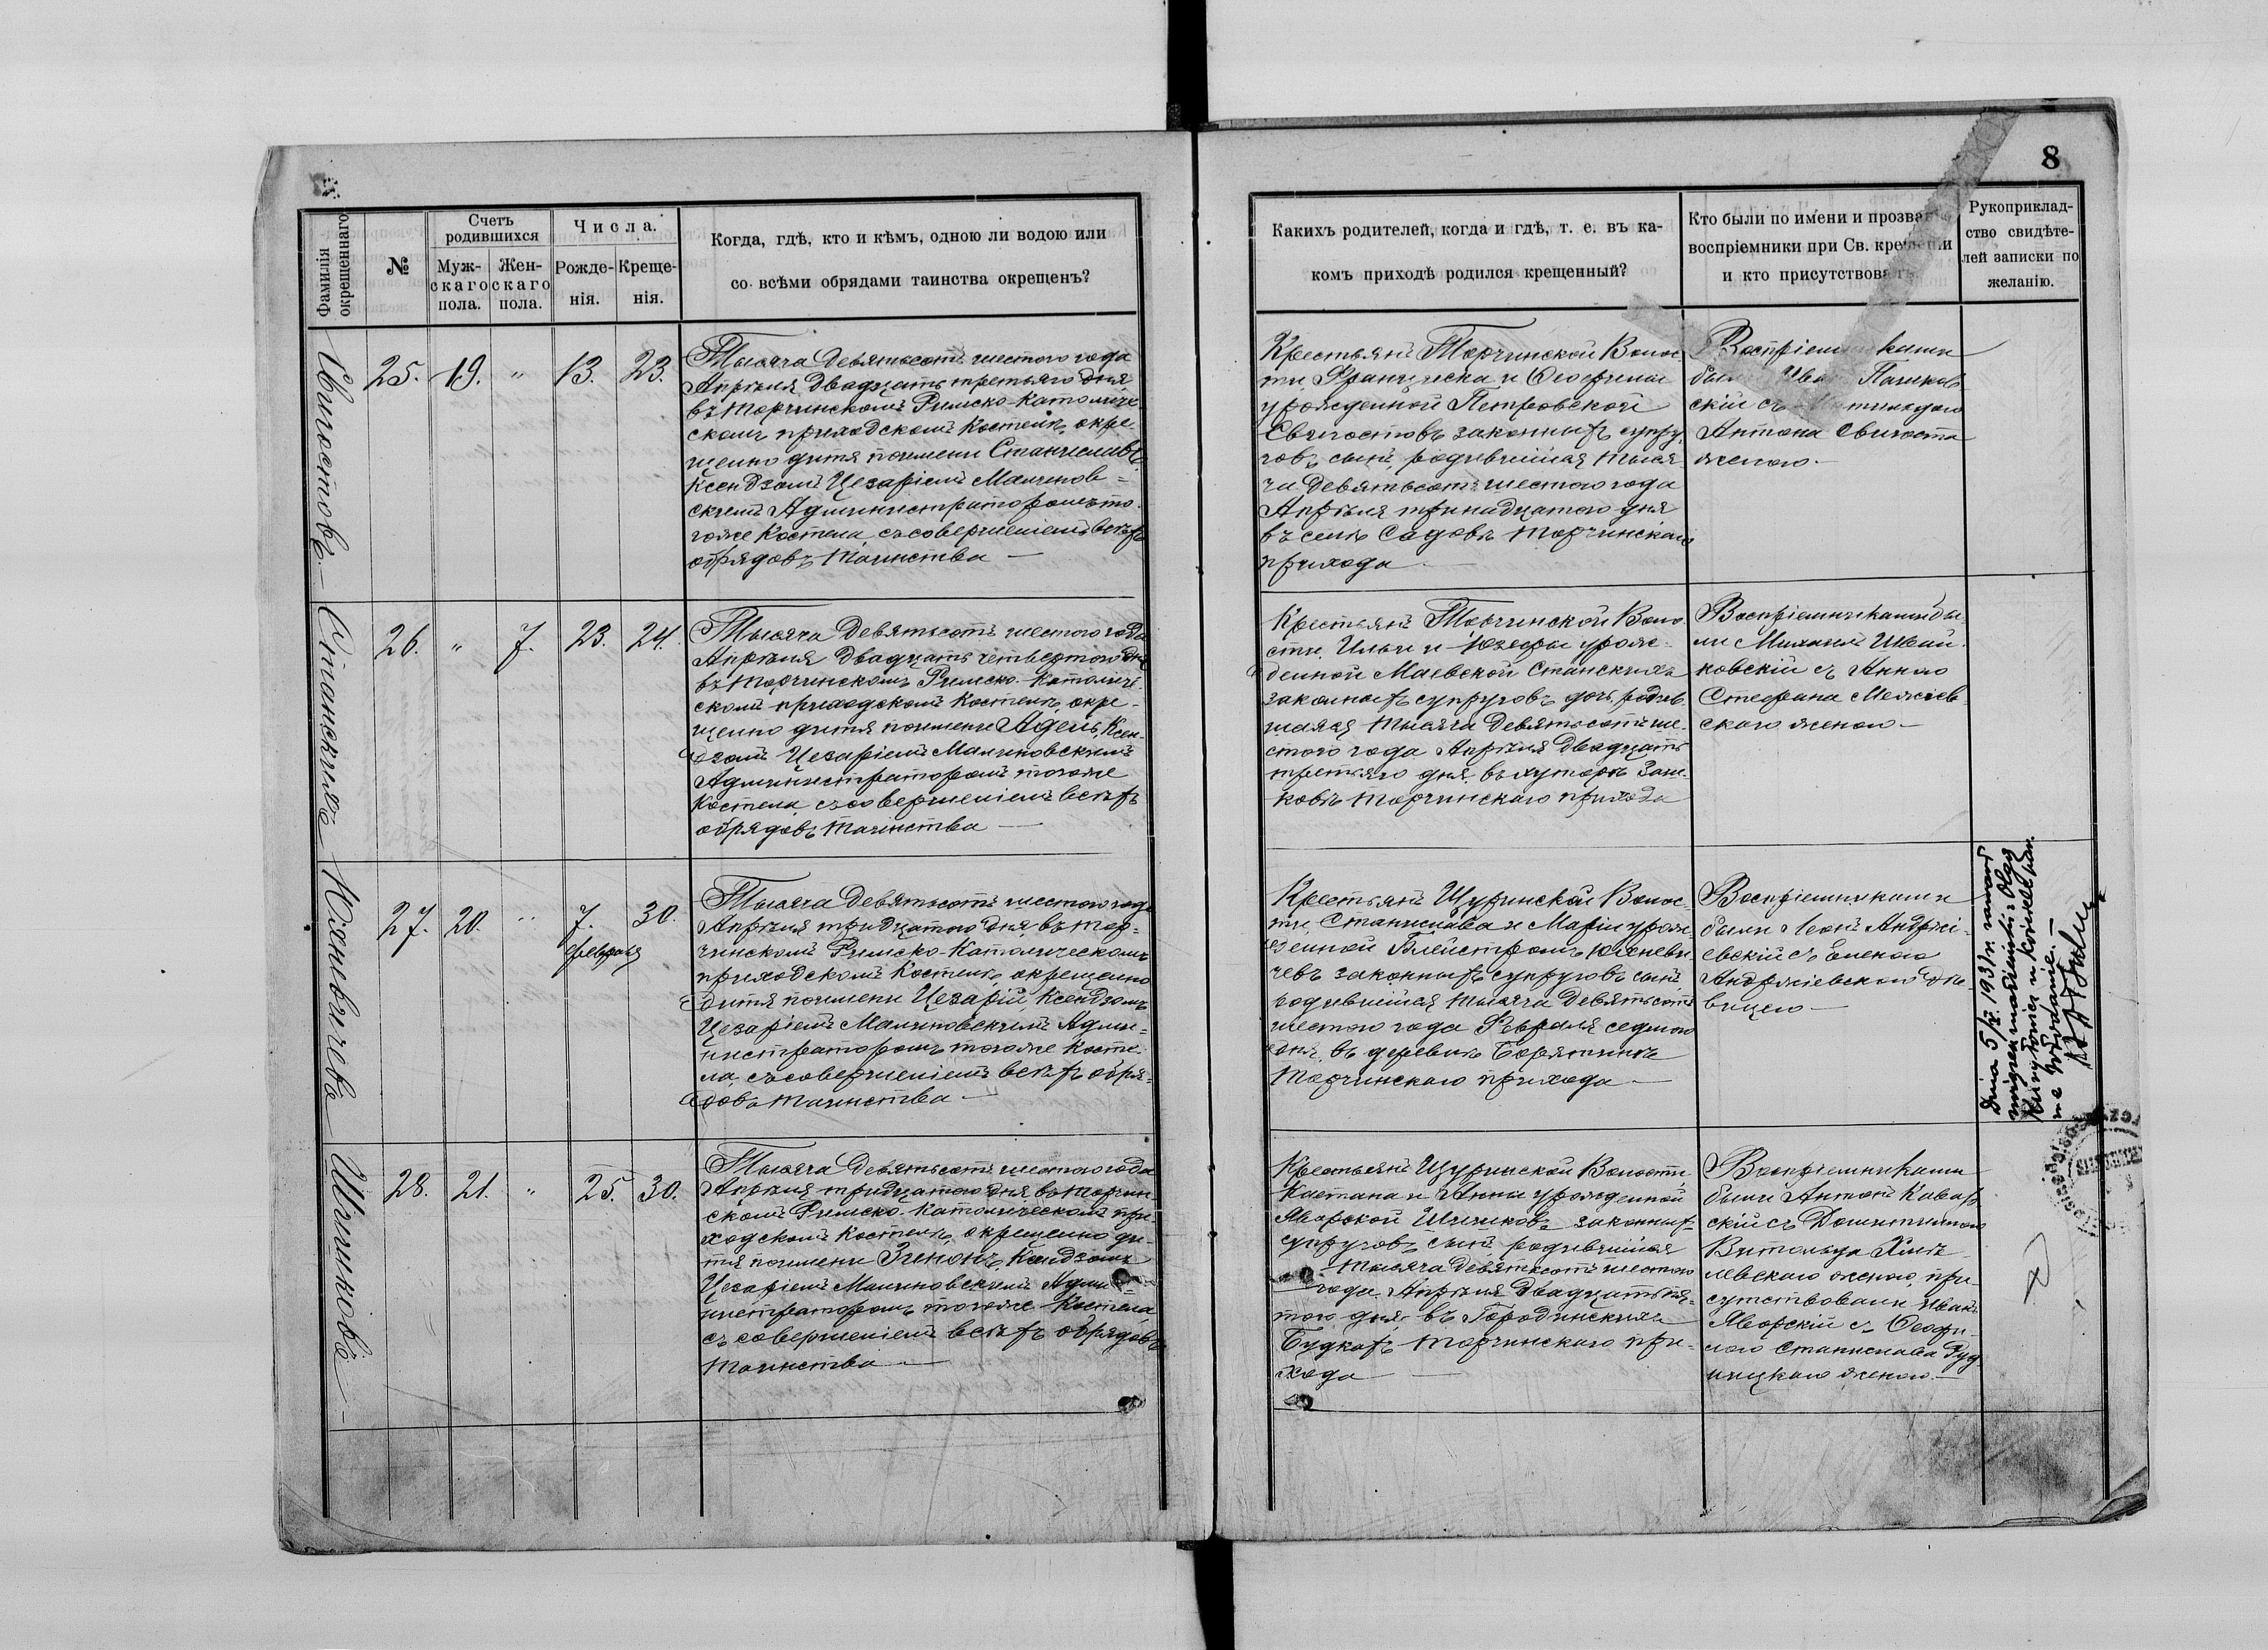 8
Фамилія окрещеннаго
№
Счетъ родившихся
Муж-скаго пола.
Жен-скаго пола.
Числа.
Рожде-нія.
Креще-нія.
Когда, гдѣ, кто и кѣмъ, одною ли водою или
со всѣми обрядами таинства окрещенъ?
Какихъ родителей, когда и гдѣ, т. е. въ ка-
комъ приходѣ родился крещенный?
Кто были по имени и прозва
воспріемники при Св. крещеніи
и кто присутствова
Рукоприклад-
ство свидѣте-
лей записки по
желанію.
Свигостовъ.—
25. 19. " 13. 23.
Тысяча девятьсотъ шестого года
Апрѣля двадцать третьяго дня
въ Торчинскомъ Римско-Католиче
скомъ приходскомъ Костелѣ, окре-
щено дитя поимени Станиславъ
Ксендзомъ Цезаріемъ Малинов-
скимъ Администраторомъ то-
гоже Костела, съ совершеніемъ всѣхъ
обрядовъ таинства —
Крестьянъ Торчинской Волос
ти Франциска и Теофилии
урожденной Петровской
Свигостовъ законныхъ супру
говъ сынъ, родившійся тыся
ча девятьсотъ шестого года
Апрѣля тринадцатого дня
въ селѣ Садовъ Торчинскаго
прихода —
Воспріемниками
были Иванъ
скій съ
Антона Свигоста
женою.—
Станскихъ
26. " 7. 23. 24.
Тысяча девятьсотъ шестого года
Апрѣля двадцать четвертого дня
въ Торчинскомъ Римско-Католиче
скомъ приходскомъ Костелѣ, окре-
щено дитя поимени Адель, Ксен-
дзомъ Цезаріемъ Малиновскимъ
Администраторомъ тогоже
Костела, съ совершеніемъ всѣхъ
обрядовъ таинства —
Крестьянъ Торчинской Воло
сти, Ильи и Юзефы урож-
денной Маевской Станскихъ
законныхъ супруговъ дочь, родив
шаяся тысяча девятьсотъ ше-
стого года Апрѣля двадцать
третьяго дня въ хуторѣ
Торчинскаго прихода
Воспріемниками бы-
ли Михаилъ Иван-
ковскій съ Анною
Стефана
скаго женою —
Юхневичевъ
27. 20. " 7. февраля 30.
Тысяча девятьсотъ шестого года
Апрѣля тридцатого дня въ Тор-
чинскомъ Римско-Католическомъ
приходскомъ Костелѣ, окрещено
дитя поимени Цезарій, Ксендзомъ
Цезаріемъ Малиновскимъ Адми-
нистраторомъ тогоже Косте-
ла, съ совершеніемъ всѣхъ обря-
довъ таинства —
Крестьянъ Щуринской Волос-
ти, Станислава и Маріи урож-
денной Юхневи
чевъ законныхъ супруговъ сынъ
родившійся тысяча девятьсотъ
шестого года Февраля седмого
дня, въ деревнѣ Борятинъ
Торчинскаго прихода —
Воспріемниками
были Леонъ Андржі-
евскій съ Еленою
Андржіевскою дѣ-
вицею —
Dnia 5/X. 1931 r. zawarł
związek małżeński z Olgą
w kościele par.
28. 21. " 25. 30.
Тысяча девятьсотъ шестого года
Апрѣля тридцатого дня, въ Торчин
скомъ Римско-Католическомъ при
ходскомъ Костелѣ, окрещено ди-
тя поимени Зенонъ, Ксендзомъ
Цезаріемъ Малиновскимъ Адми
нистраторомъ тогоже Костела
съ совершеніемъ всѣхъ обрядовъ
таинства —
Крестьянъ Щуринской Волости,
Каетана и Анны урожденной
Яворской законныхъ
супруговъ сынъ родившійся
тысяча девятьсотъ шестого
года Апрѣля двадцать пя-
того дня, въ Городинскихъ
Будкахъ Торчинскаго при-
хода —
Воспріемниками
были Антонъ
скій съ
Витольда
левскаго женою, при-
сутствовали Иванъ
Яворскій съ Теофи-
лею Станислава Руд
ницкаго женою.—